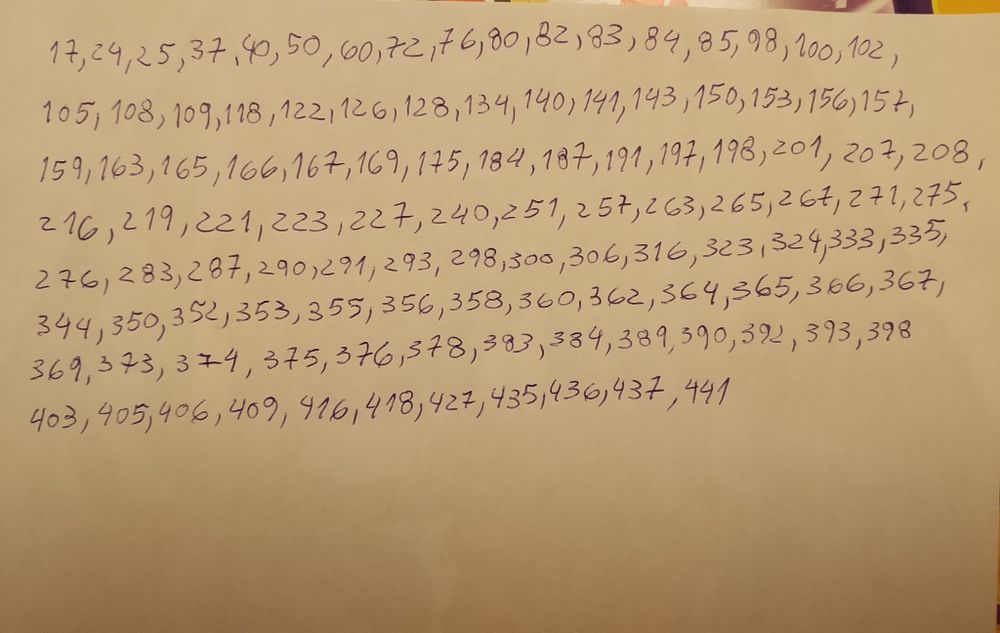 17,24,25,37,40,50,60,72,76,80,82,83,84,85,98,100,102,
105,108,109,118,122,126,128,134,140,141,143,150,153,156,157,
159,163,165,166,167,169,175,184,187,191,197,198,201,207,208,
216,219,221,223,227,240,251,257,263,265,267,271,275,
276,283,287,290,291,293,298,300,306,316,323,324,333,335,
344,350,352,353,355,356,358,360,362,364,365,366,367,
369,373,374,375,376,378,383,384,389,390,392,393,398
403,405,406,409,416,418,427,435,436,437,441